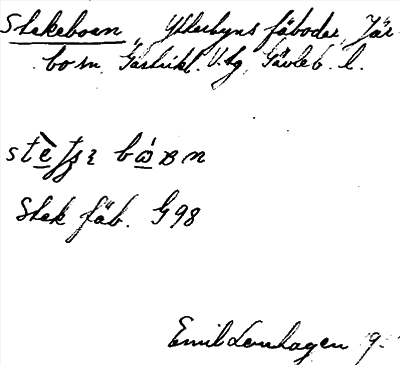 Stekeboen, Ytterbyns fäbodar, Jär-
bo sn, Gästrikl. V. tg, Gävleb. l.
Stek fäb. G 98
Emil Lenhagen 9.